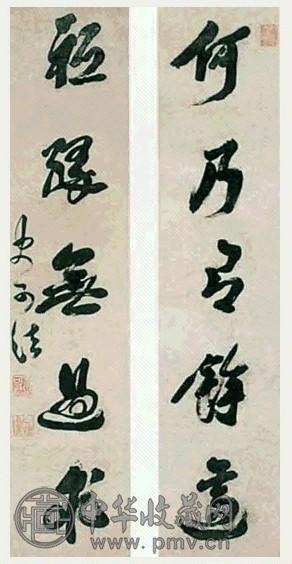 何乃有餘適
祇緣無過求
史可法
中华收藏网
www.pmv.cn